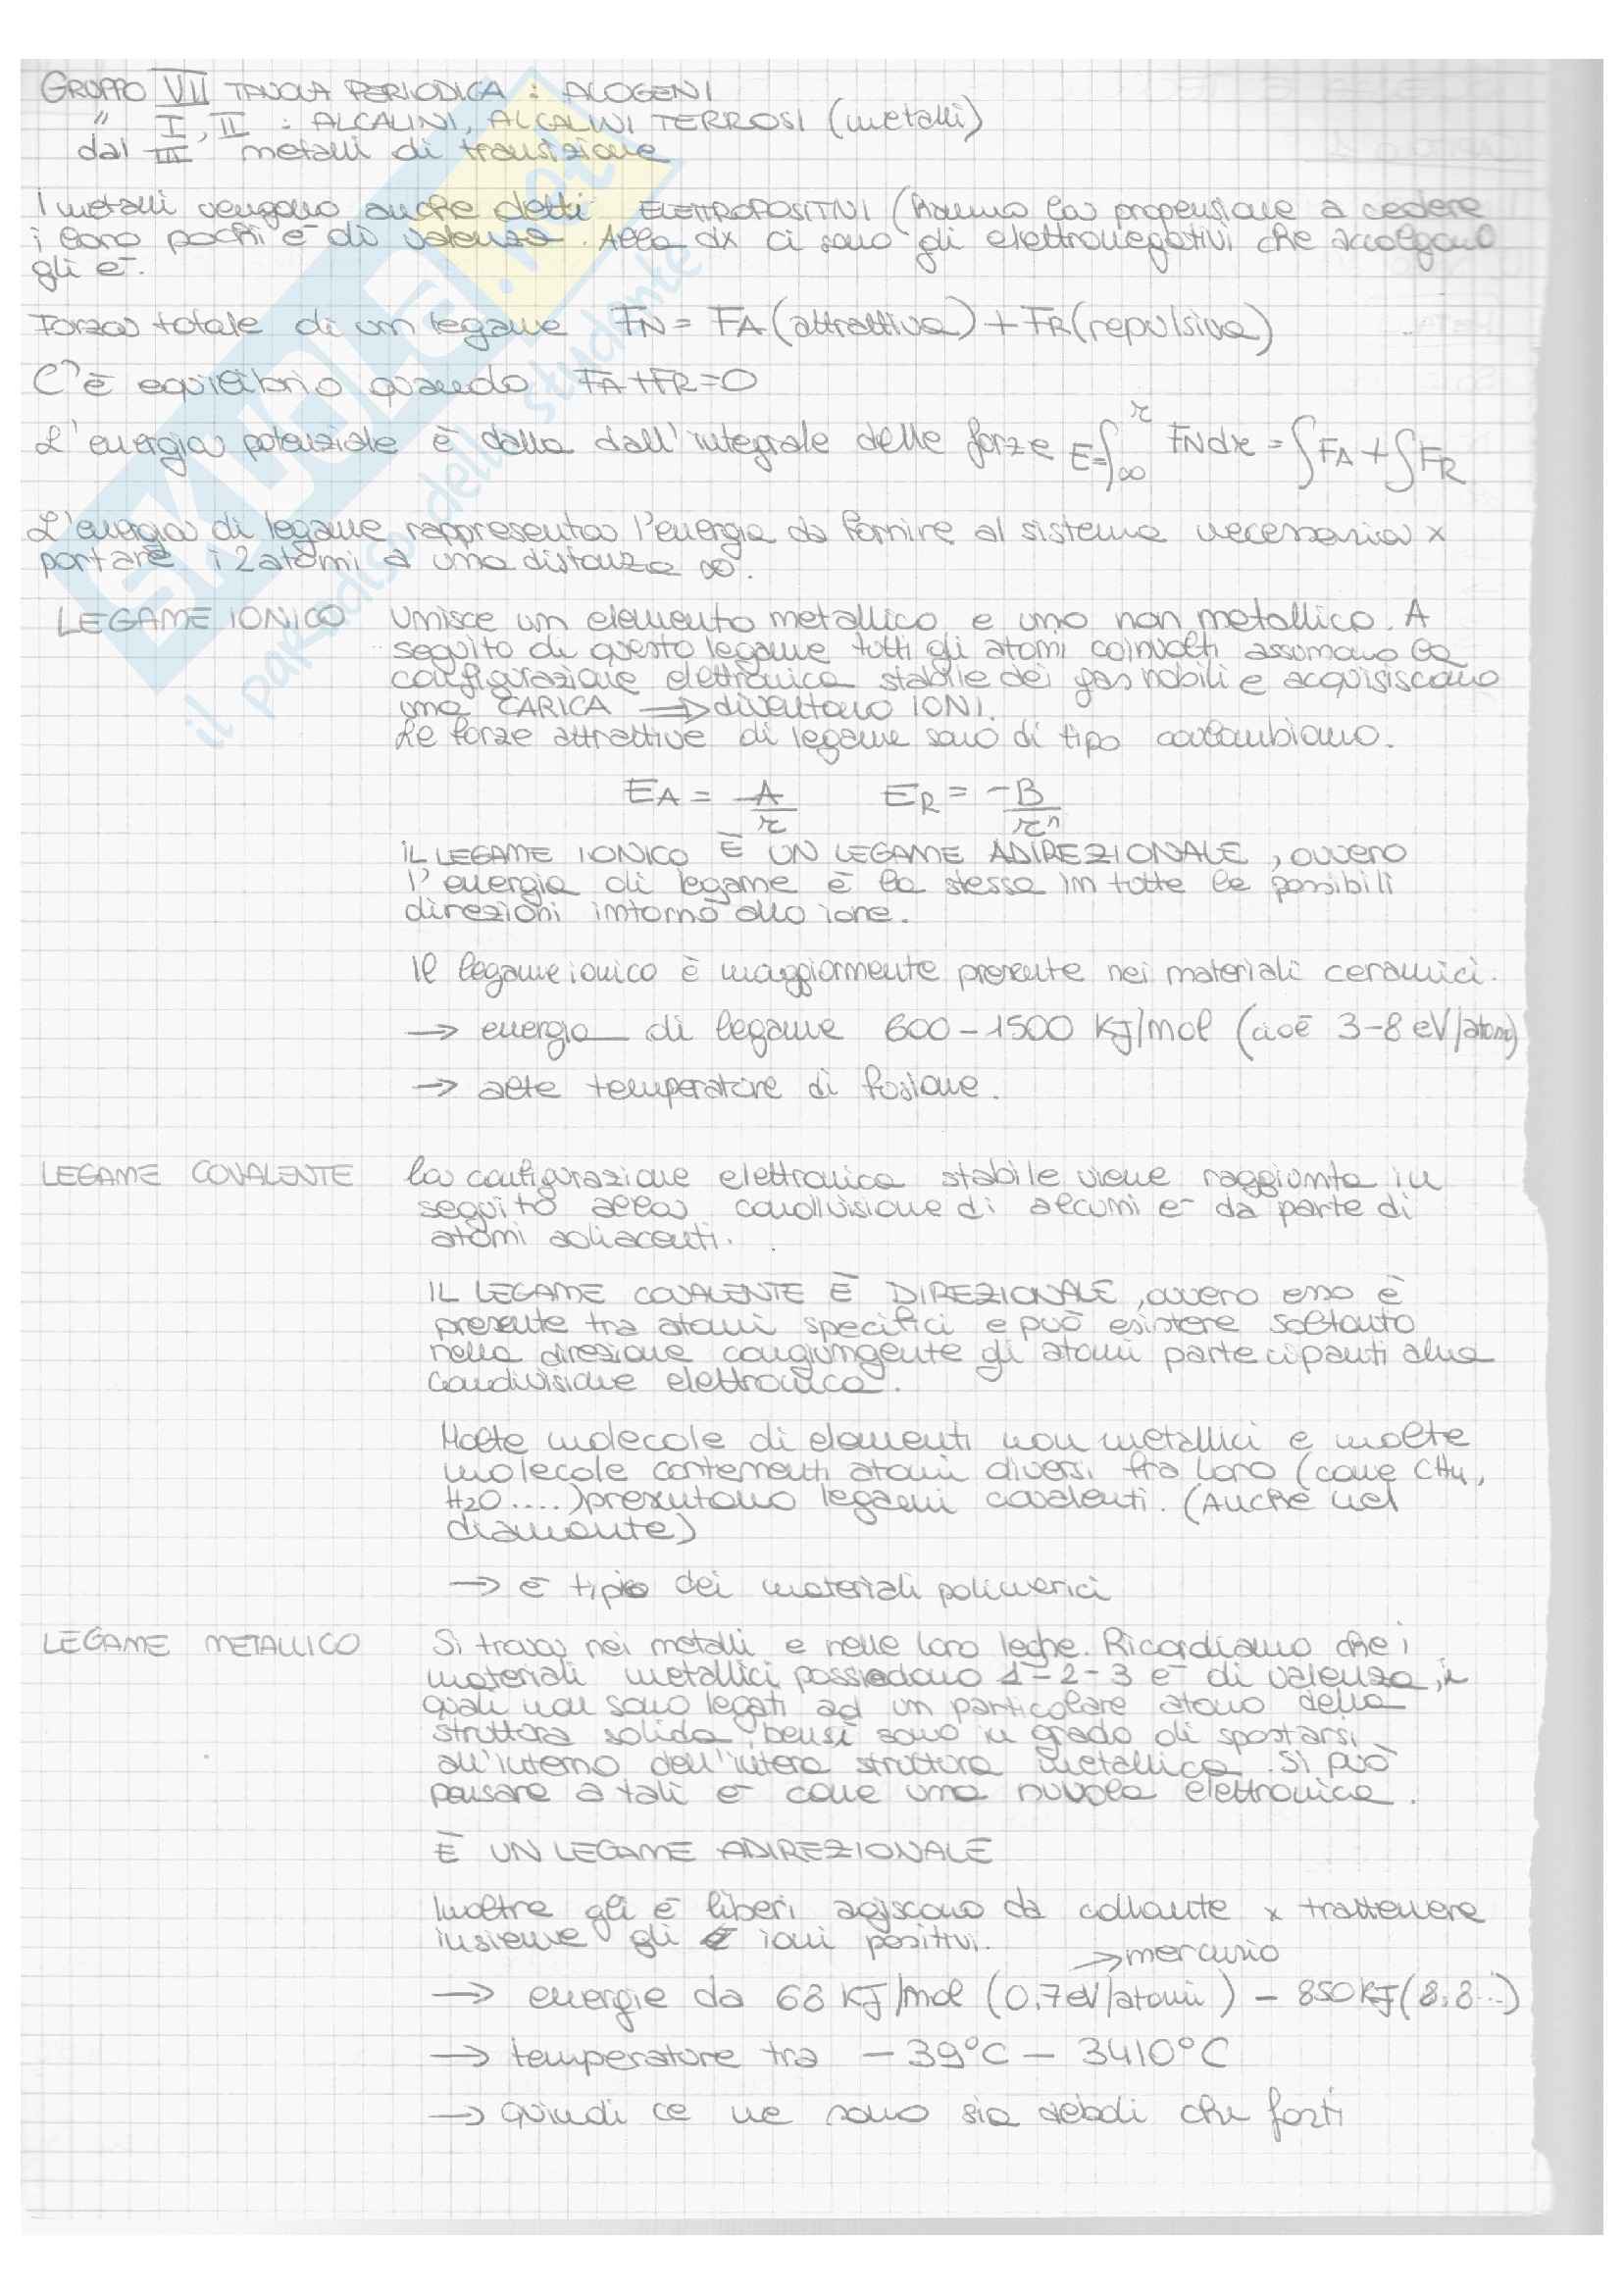 GRUPPO VII TAVOLA PERIODICA : ALOGENI
" I, II : ALCALINI, ALCALINI TERROSI (metalli)
dal III metalli di transizione
I metalli vengono anche detti ELETTROPOSITIVI (hanno la propensione a cedere
i loro pochi e⁻ di valenza. Alla dx ci sono gli elettronegativi che accolgono
gli e⁻.
Forza totale di un legame FN = FA (attrattiva) + FR (repulsiva)
C'è equilibrio quando FA+FR=0
L'energia potenziale è data dall'integrale delle forze E=∫∞^r FN dr = ∫FA + ∫FR
L'energia di legame rappresenta l'energia da fornire al sistema necessaria x
portare i 2 atomi a una distanza ∞.
LEGAME IONICO Unisce un elemento metallico e uno non metallico. A
seguito di questo legame tutti gli atomi coinvolti assumono la
configurazione elettronica stabile dei gas nobili e acquisiscono
una CARICA ⇒ diventano IONI.
Le forze attrattive di legame sono di tipo coulombiano.
EA = -A/r ER = -B/rⁿ
IL LEGAME IONICO È UN LEGAME ADIREZIONALE, ovvero
l'energia di legame è la stessa in tutte le possibili
direzioni intorno allo ione.
Il legame ionico è maggiormente presente nei materiali ceramici.
→ energia di legame 600-1500 KJ/mol (cioè 3-8 eV/atomo)
→ alte temperature di fusione.
LEGAME COVALENTE la configurazione elettronica stabile viene raggiunta in
seguito alla condivisione di alcuni e⁻ da parte di
atomi adiacenti.
IL LEGAME COVALENTE È DIREZIONALE, ovvero esso è
presente tra atomi specifici e può esistere soltanto
nella direzione congiungente gli atomi partecipanti alla
condivisione elettronica.
Molte molecole di elementi non metallici e molte
molecole contenenti atomi diversi fra loro (come CH4,
H2O....) presentano legami covalenti. (Anche nel
diamante)
→ è tipico dei materiali polimerici
LEGAME METALLICO Si trova nei metalli e nelle loro leghe. Ricordiamo che i
materiali metallici possiedono 1-2-3 e⁻ di valenza, i
quali non sono legati ad un particolare atomo della
struttura solida, bensì sono in grado di spostarsi
all'interno dell'intera struttura metallica. Si può
pensare a tali e⁻ come una nuvola elettronica.
È UN LEGAME ADIREZIONALE
Inoltre gli e⁻ liberi agiscono da collante x trattenere
insieme gli ioni positivi.
→ mercurio
→ energie da 68 KJ/mol (0,7 eV/atomi) - 850 KJ (8,8...)
→ temperature tra -39°C - 3410°C
→ quindi ce ne sono sia deboli che forti
SKUOLA.net
il paradiso dello studente